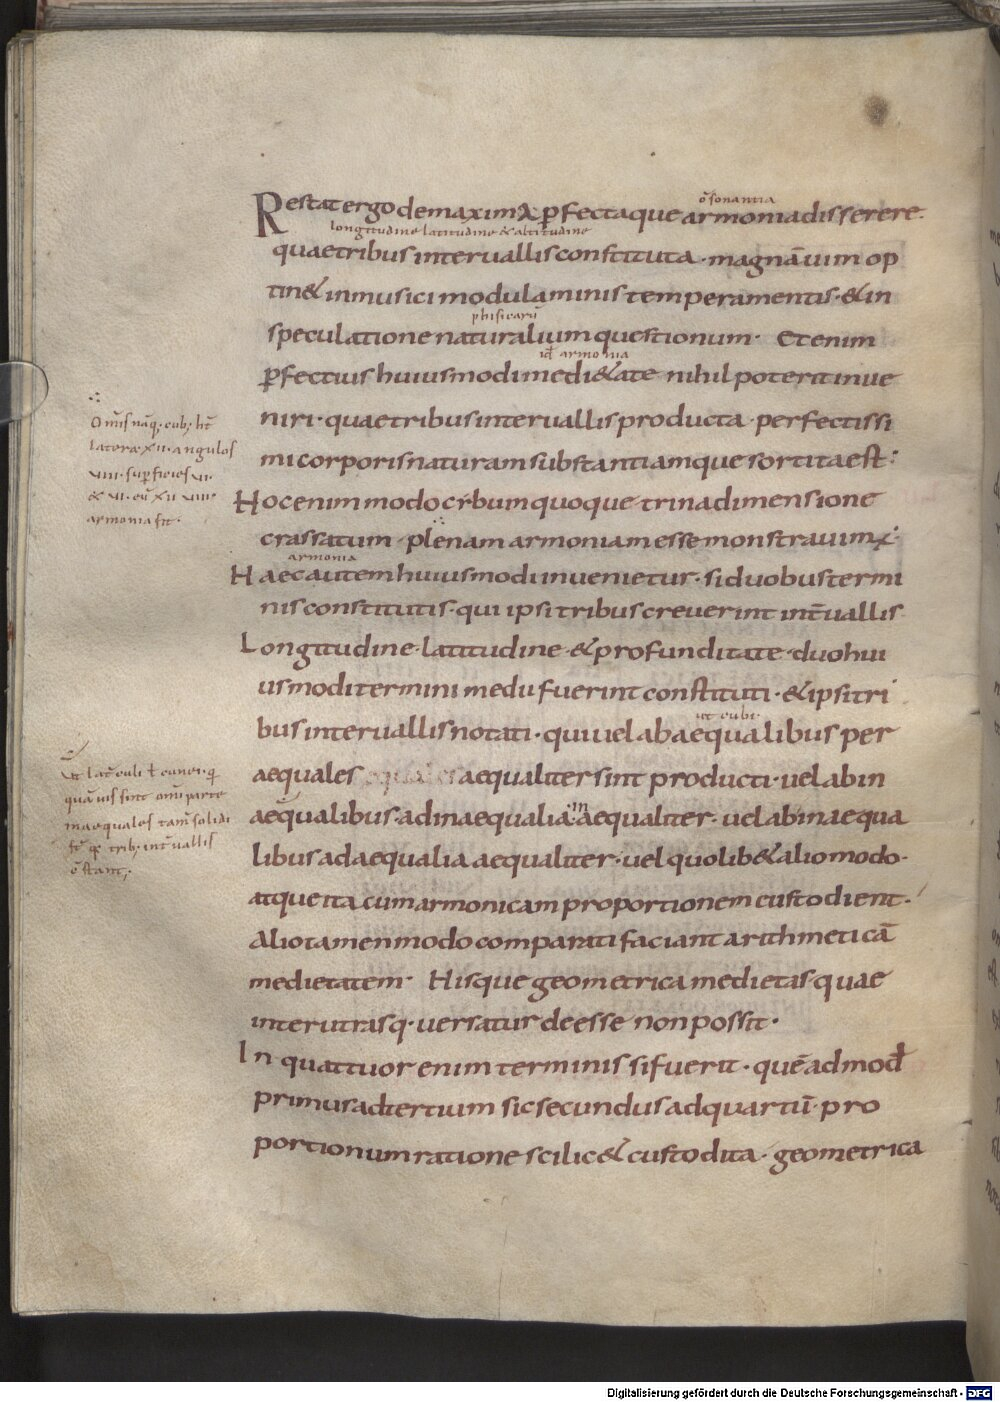 Restat ergo de maxima perfectaque armonia disserere.
c̄sonantia
longitudine latitudine & altitudine
quae tribus interuallis constituta · magnā uim op
tin& in musici modulaminis temperamentis · & in
speculatione naturalium questionum · Etenim
phisicarū
p̲fectius huiusmodi medi&ate nihil poterit inue
id armonia
niri · quae tribus interuallis producta · perfectissi
mi corporis naturam substantiamque sortita est :
Hoc enim modo cybum quoque trina dimensione
crassatum · plenam armoniam esse monstrauim;
armonia
Haec autem huiusmodi inuenietur · si duobus termi
nis constitutis · qui ipsi tribus creuerint int̄uallis
Longitudine · latitudine · & profunditate · duo hui
usmodi termini medii fuerint constituti · & ipsi tri
bus interuallis notati · qui uel ab aequalibus per
ut cubi ·
aequales aequaliter sint producti · uel ab in
aequalibus · ad inaequalia in aequaliter · uel ab inaequa
libus ad aequalia aequaliter · uel quolib& alio modo ·
atque ita cum armonicam proportionem custodient ·
alio tamen modo comparati faciant arithmeticā
medietatem · Hisque geometrica medietas · quae
inter utrasq · uersatur deesse non possit ·
In quattuor enim terminis si fuerit · quēadmod
primus ad tertium sic secundus ad quartū · pro
portionum ratione scilic& custodita · geometrica
Omīs nāq; cub; ht̄
latera XII · angulos
VIII · sup̲ficies VI ·
& VI · cū XII VIII
armonia fit ·
Vt lat̄culi ł cunei · q
quāuis sint omī parte
inaequales tam̄ solidi
st̄ trib; int̄uallis
c̄stant;
Digitalisierung gefördert durch die Deutsche Forschungsgemeinschaft - DFG